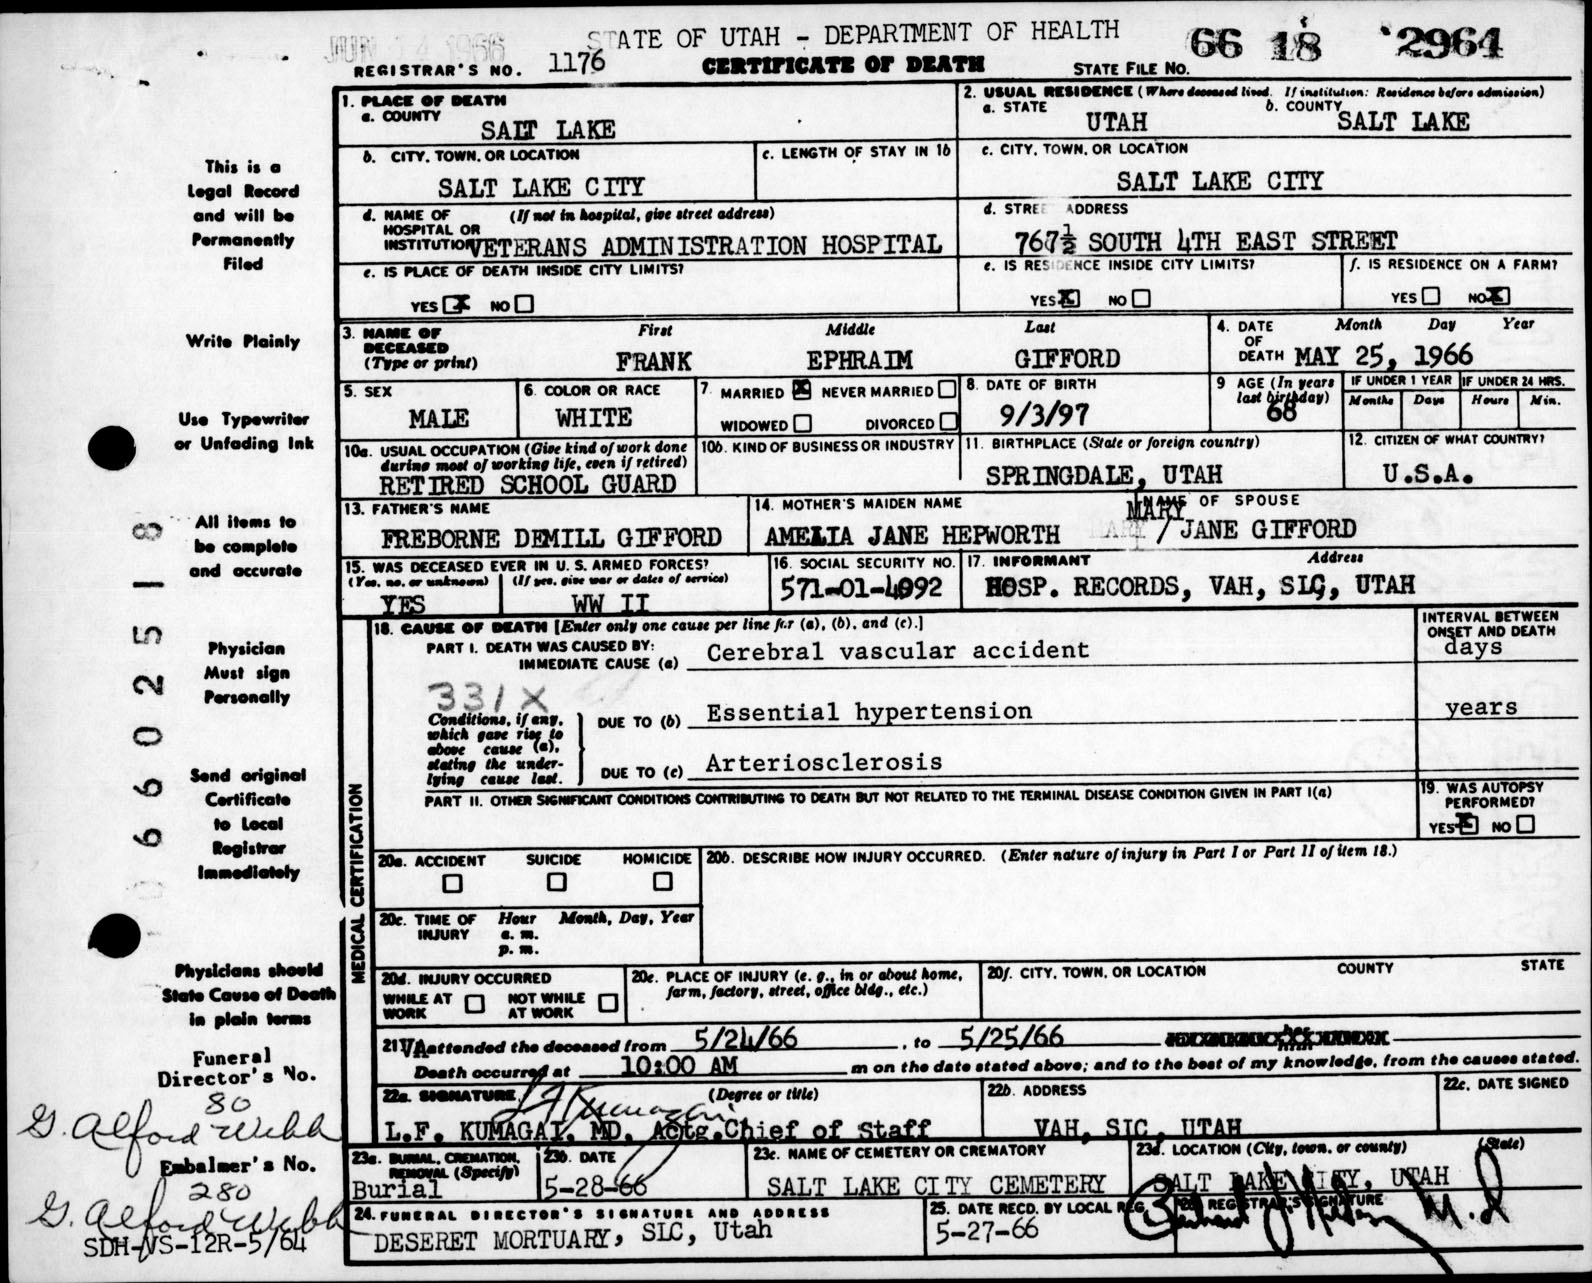 JUN 14 1966
STATE OF UTAH - DEPARTMENT OF HEALTH
66 18 2964
REGISTRAR'S NO. 1176
CERTIFICATE OF DEATH
STATE FILE NO.
1. PLACE OF DEATH
a. COUNTY
SALT LAKE
2. USUAL RESIDENCE (Where deceased lived. If institution: Residence before admission)
a. STATE
UTAH
b. COUNTY
SALT LAKE
b. CITY, TOWN, OR LOCATION
SALT LAKE CITY
c. LENGTH OF STAY IN 1b
c. CITY, TOWN, OR LOCATION
SALT LAKE CITY
d. NAME OF HOSPITAL OR INSTITUTION
(If not in hospital, give street address)
VETERANS ADMINISTRATION HOSPITAL
d. STREET ADDRESS
767½ SOUTH 4TH EAST STREET
e. IS PLACE OF DEATH INSIDE CITY LIMITS?
YES X NO
e. IS RESIDENCE INSIDE CITY LIMITS?
YES X NO
f. IS RESIDENCE ON A FARM?
YES NO X
3. NAME OF DECEASED (Type or print)
First Middle Last
FRANK EPHRAIM GIFFORD
4. DATE OF DEATH
Month Day Year
MAY 25, 1966
5. SEX
MALE
6. COLOR OR RACE
WHITE
7. MARRIED X NEVER MARRIED
WIDOWED DIVORCED
8. DATE OF BIRTH
9/3/97
9 AGE (In years last birthday)
68
IF UNDER 1 YEAR
Months Days
IF UNDER 24 HRS.
Hours Min.
10a. USUAL OCCUPATION (Give kind of work done during most of working life, even if retired)
RETIRED SCHOOL GUARD
10b. KIND OF BUSINESS OR INDUSTRY
11. BIRTHPLACE (State or foreign country)
SPRINGDALE, UTAH
12. CITIZEN OF WHAT COUNTRY?
U.S.A.
13. FATHER'S NAME
FREBORNE DEMILL GIFFORD
14. MOTHER'S MAIDEN NAME
AMELIA JANE HEPWORTH
NAME OF SPOUSE
MARY
/ JANE GIFFORD
15. WAS DECEASED EVER IN U. S. ARMED FORCES?
(Yes, no, or unknown) (If yes, give war or dates of service)
YES WW II
16. SOCIAL SECURITY NO.
571-01-4992
17. INFORMANT Address
HOSP. RECORDS, VAH, SLC, UTAH
MEDICAL CERTIFICATION
18. CAUSE OF DEATH [Enter only one cause per line for (a), (b), and (c).]
INTERVAL BETWEEN ONSET AND DEATH
PART I. DEATH WAS CAUSED BY:
IMMEDIATE CAUSE (a) Cerebral vascular accident
days
331X
Conditions, if any, which gave rise to above cause (a), stating the underlying cause last.
DUE TO (b) Essential hypertension
years
DUE TO (c) Arteriosclerosis
PART II. OTHER SIGNIFICANT CONDITIONS CONTRIBUTING TO DEATH BUT NOT RELATED TO THE TERMINAL DISEASE CONDITION GIVEN IN PART I(a)
19. WAS AUTOPSY PERFORMED?
YES X NO
20a. ACCIDENT SUICIDE HOMICIDE
20b. DESCRIBE HOW INJURY OCCURRED. (Enter nature of injury in Part I or Part II of item 18.)
20c. TIME OF INJURY
Hour Month, Day, Year
a. m.
p. m.
20d. INJURY OCCURRED
WHILE AT WORK NOT WHILE AT WORK
20e. PLACE OF INJURY (e. g., in or about home, farm, factory, street, office bldg., etc.)
20f. CITY, TOWN, OR LOCATION COUNTY STATE
21 VA attended the deceased from 5/24/66, to 5/25/66
Death occurred at 10:00 AM m on the date stated above; and to the best of my knowledge, from the causes stated.
22a. SIGNATURE (Degree or title)
L F Kumagai
L.F. KUMAGAI, MD, Actg.Chief of Staff
22b. ADDRESS
VAH, SLC, UTAH
22c. DATE SIGNED
23a. BURIAL, CREMATION, REMOVAL (Specify)
Burial
23b. DATE
5-28-66
23c. NAME OF CEMETERY OR CREMATORY
SALT LAKE CITY CEMETERY
23d. LOCATION (City, town, or county) (State)
SALT LAKE CITY, UTAH
24. FUNERAL DIRECTOR'S SIGNATURE AND ADDRESS
DESERET MORTUARY, SLC, Utah
25. DATE RECD. BY LOCAL REG.
5-27-66
REGISTRAR'S SIGNATURE
M.D
This is a
Legal Record
and will be
Permanently
Filed
Write Plainly
Use Typewriter
or Unfading Ink
All items to
be complete
and accurate
Physician
Must sign
Personally
Send original
Certificate
to Local
Registrar
Immediately
Physicians should
State Cause of Death
in plain terms
Funeral
Director's No.
80
G. Alford Webb
Embalmer's No.
280
G. Alford Webb
SDH-VS-12R-5/64
0660251 8